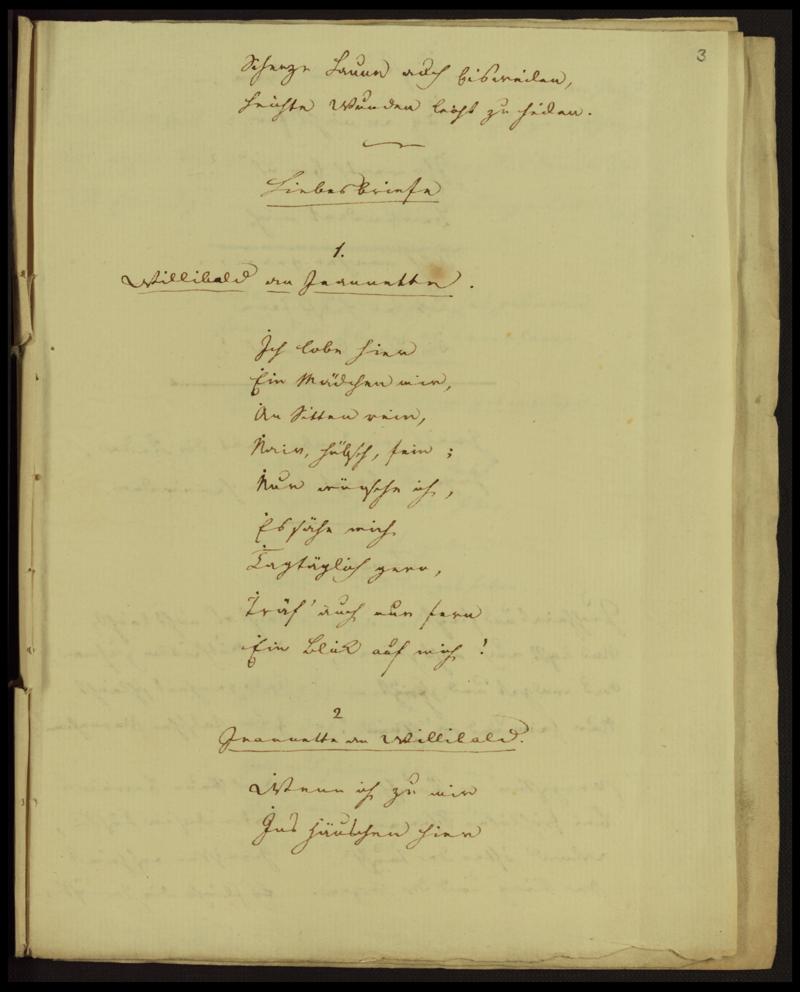 3
Scherze Laune auch bisweilen,
Leichte Wunden leicht zu heilen.
Liebesbriefe
1.
Willibald an Jeannette.
Ich lobe hier
Ein Mädchen mir,
An Sitten rein,
Naiv, hübsch, fein;
Nur wünsche ich,
Es sähe mich
Tagtäglich gern,
Träf' auch nur fern
Ein Blick auf mich!
2
Jeannette an Willibald.
Wenn ich zu mir
Ins Häuschen hier